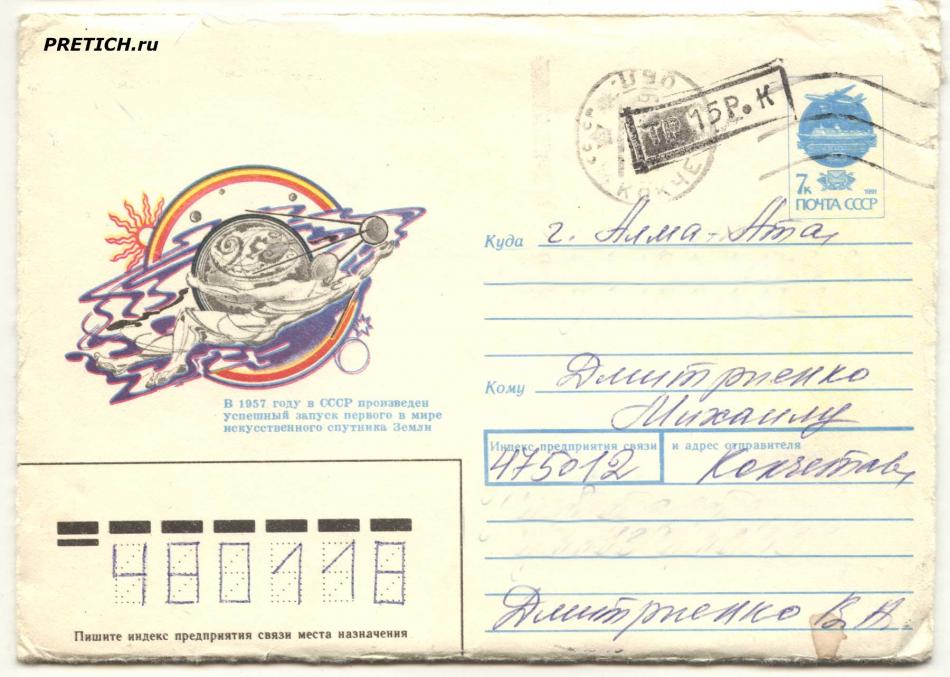 PRETICH.ru
ТР 15Р.К
7к
1991
ПОЧТА СССР
Куда г. Алма-Ата,
Кому Дмитриенко
Михаилу
В 1957 году в СССР произведен
успешный запуск первого в мире
искусственного спутника Земли
Индекс предприятия связи и адрес отправителя
475012 Кокчетав,
480118
Пишите индекс предприятия связи места назначения
Дмитриенко В.А.